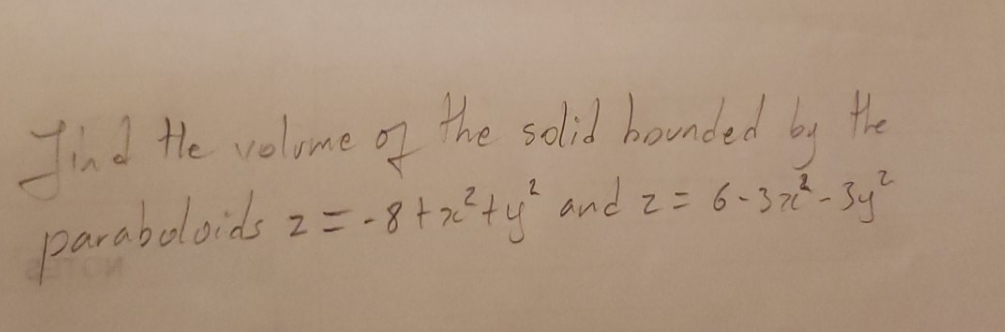 Find the volume of the solid bounded by the
paraboloids z = -8 + x² + y² and z = 6 - 3x² - 3y²
NOTES